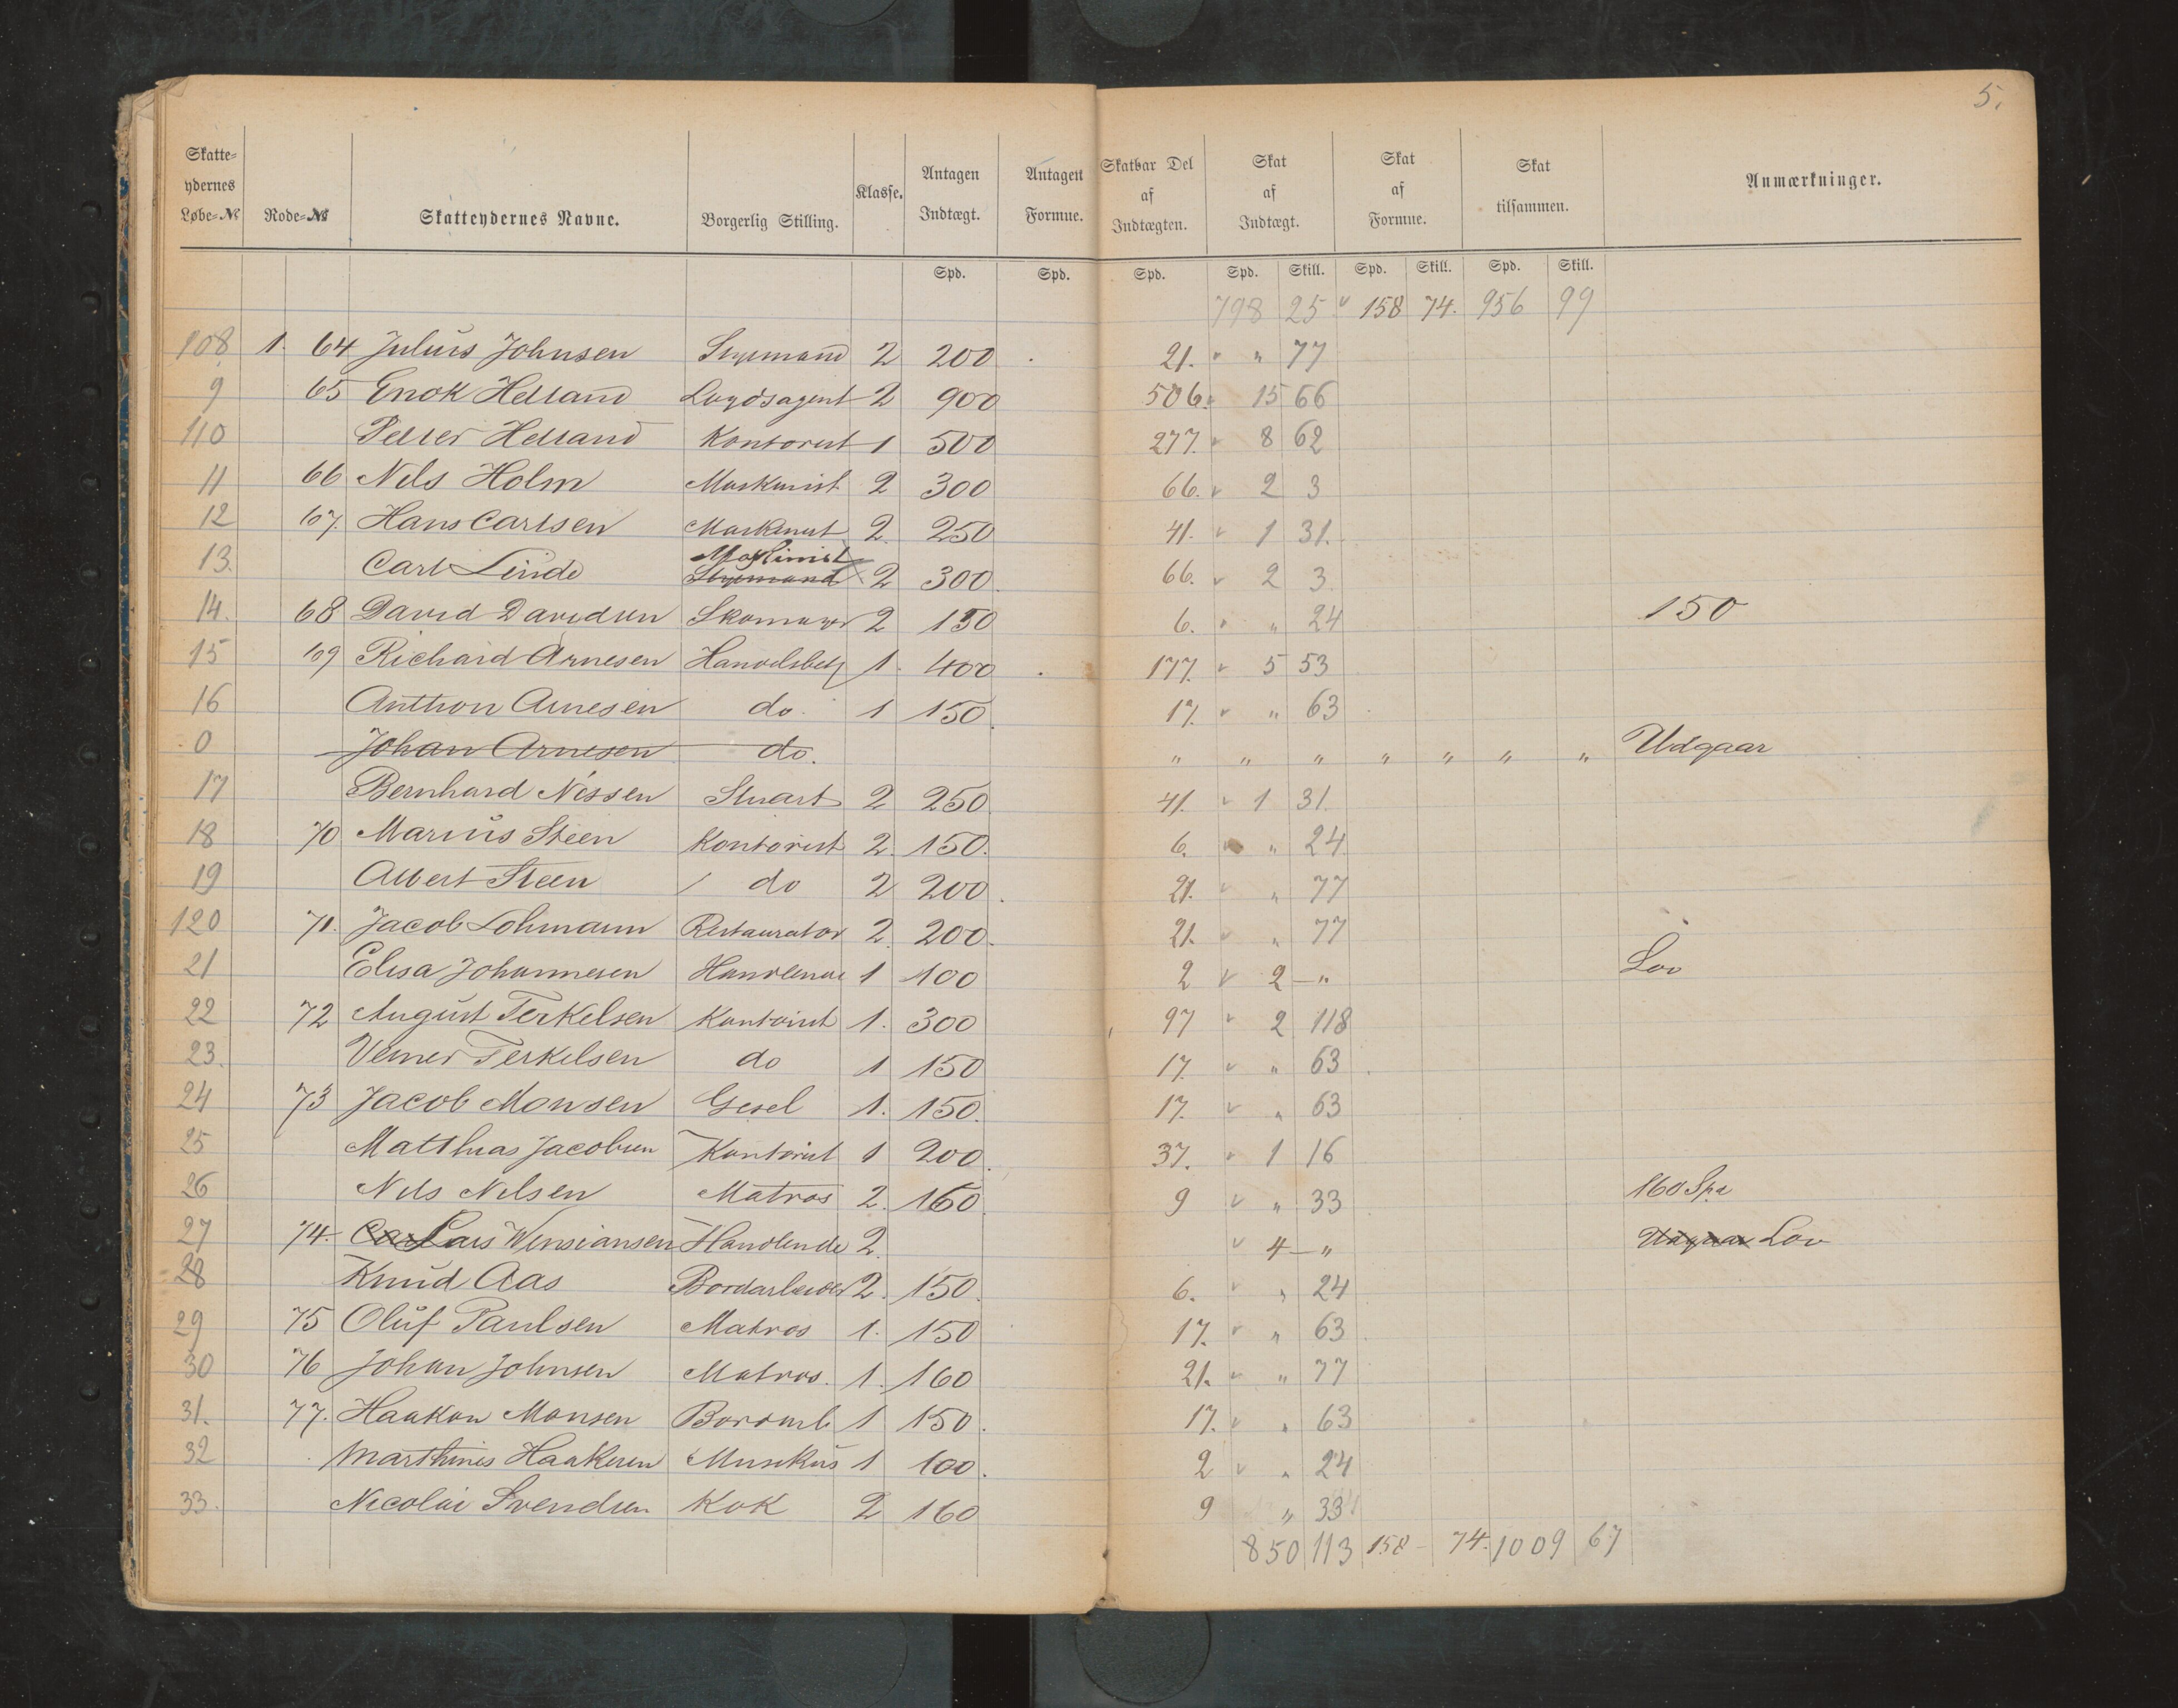 5.
Skatte-ydernes Løbe-№ Rode-№ Skatteydernes Navne. Borgerlig Stilling. Klasse. Antagen Indtægt. Antagen Formue. Skatbar Del af Indtægten. Skat af Indtægt. Skat af Formue. Skat tilsammen. Anmærkninger.
Spd. Spd. Spd. Spd. Skill. Spd. Skill. Spd. Skill.
798 25 158 74. 956 99
108 1. 64 Julius Johnsen Styrmand 2 200 21. " 77
9 65 Enok Helland Loydsagent 2 900 506. 15 66
110 Petter Helland Kontorist 1 500 277. 8 62
11 66 Nils Holm Maskinist 2 300 66. 2 3
12 67. Hans Carlsen Maskinist 2. 250 41. 1 31.
13. Carl Linde Maskinist Styrmand 2 300. 66. 2 3.
14. 68 David Davidsen Skomager 2 150 6. " 24 150
15 69 Richard Arnesen Handelsbetj 1. 400 177. 5 53
16 Anthon Arnesen do. 1 150. 17. " 63
0 Johan Arnesen do. " " " " " " " Udgaar
17 Bernhard Nissen Stuart 2 250 41. 1 31.
18 70 Marius Steen Kontorist 2. 150. 6. " 24.
19 Albert Steen do 2 200. 21. " 77
120 71. Jacob Lohmann Restaurator 2. 200. 21. " 77
21 Elisa Johannesen Handlende 1 100 2 2 — " Lov
22 72 August Terkelsen Kontorist 1. 300 97 2 118
23. Verner Terkelsen do 1 150 17. " 63
24 73 Jacob Monsen Gesel 1. 150. 17. " 63
25 Matthias Jacobsen Kontorist 1 200. 37. 1 16
26 Nils Nilsen Matros 2. 160 9 " 33 160 Spd
27 74. Carl Lars Winsiansen Handlende 2. 4 — " Udgaar Lov
28 Knud Aas Bordarbeider 2. 150. 6. " 24
29 75 Oluf Paulsen Matros 1. 150 17. " 63
30 76 Johan Johnsen Matros. 1. 160 21. " 77
31. 77. Haakon Monsen Bordarb 1 150. 17. " 63
32 Marthinis Haakesen Musikus 1 100. 2 " 24
33. Nicolai Svendsen Kok 2 160 9 " 33
850 113 158 - 74. 1009 67